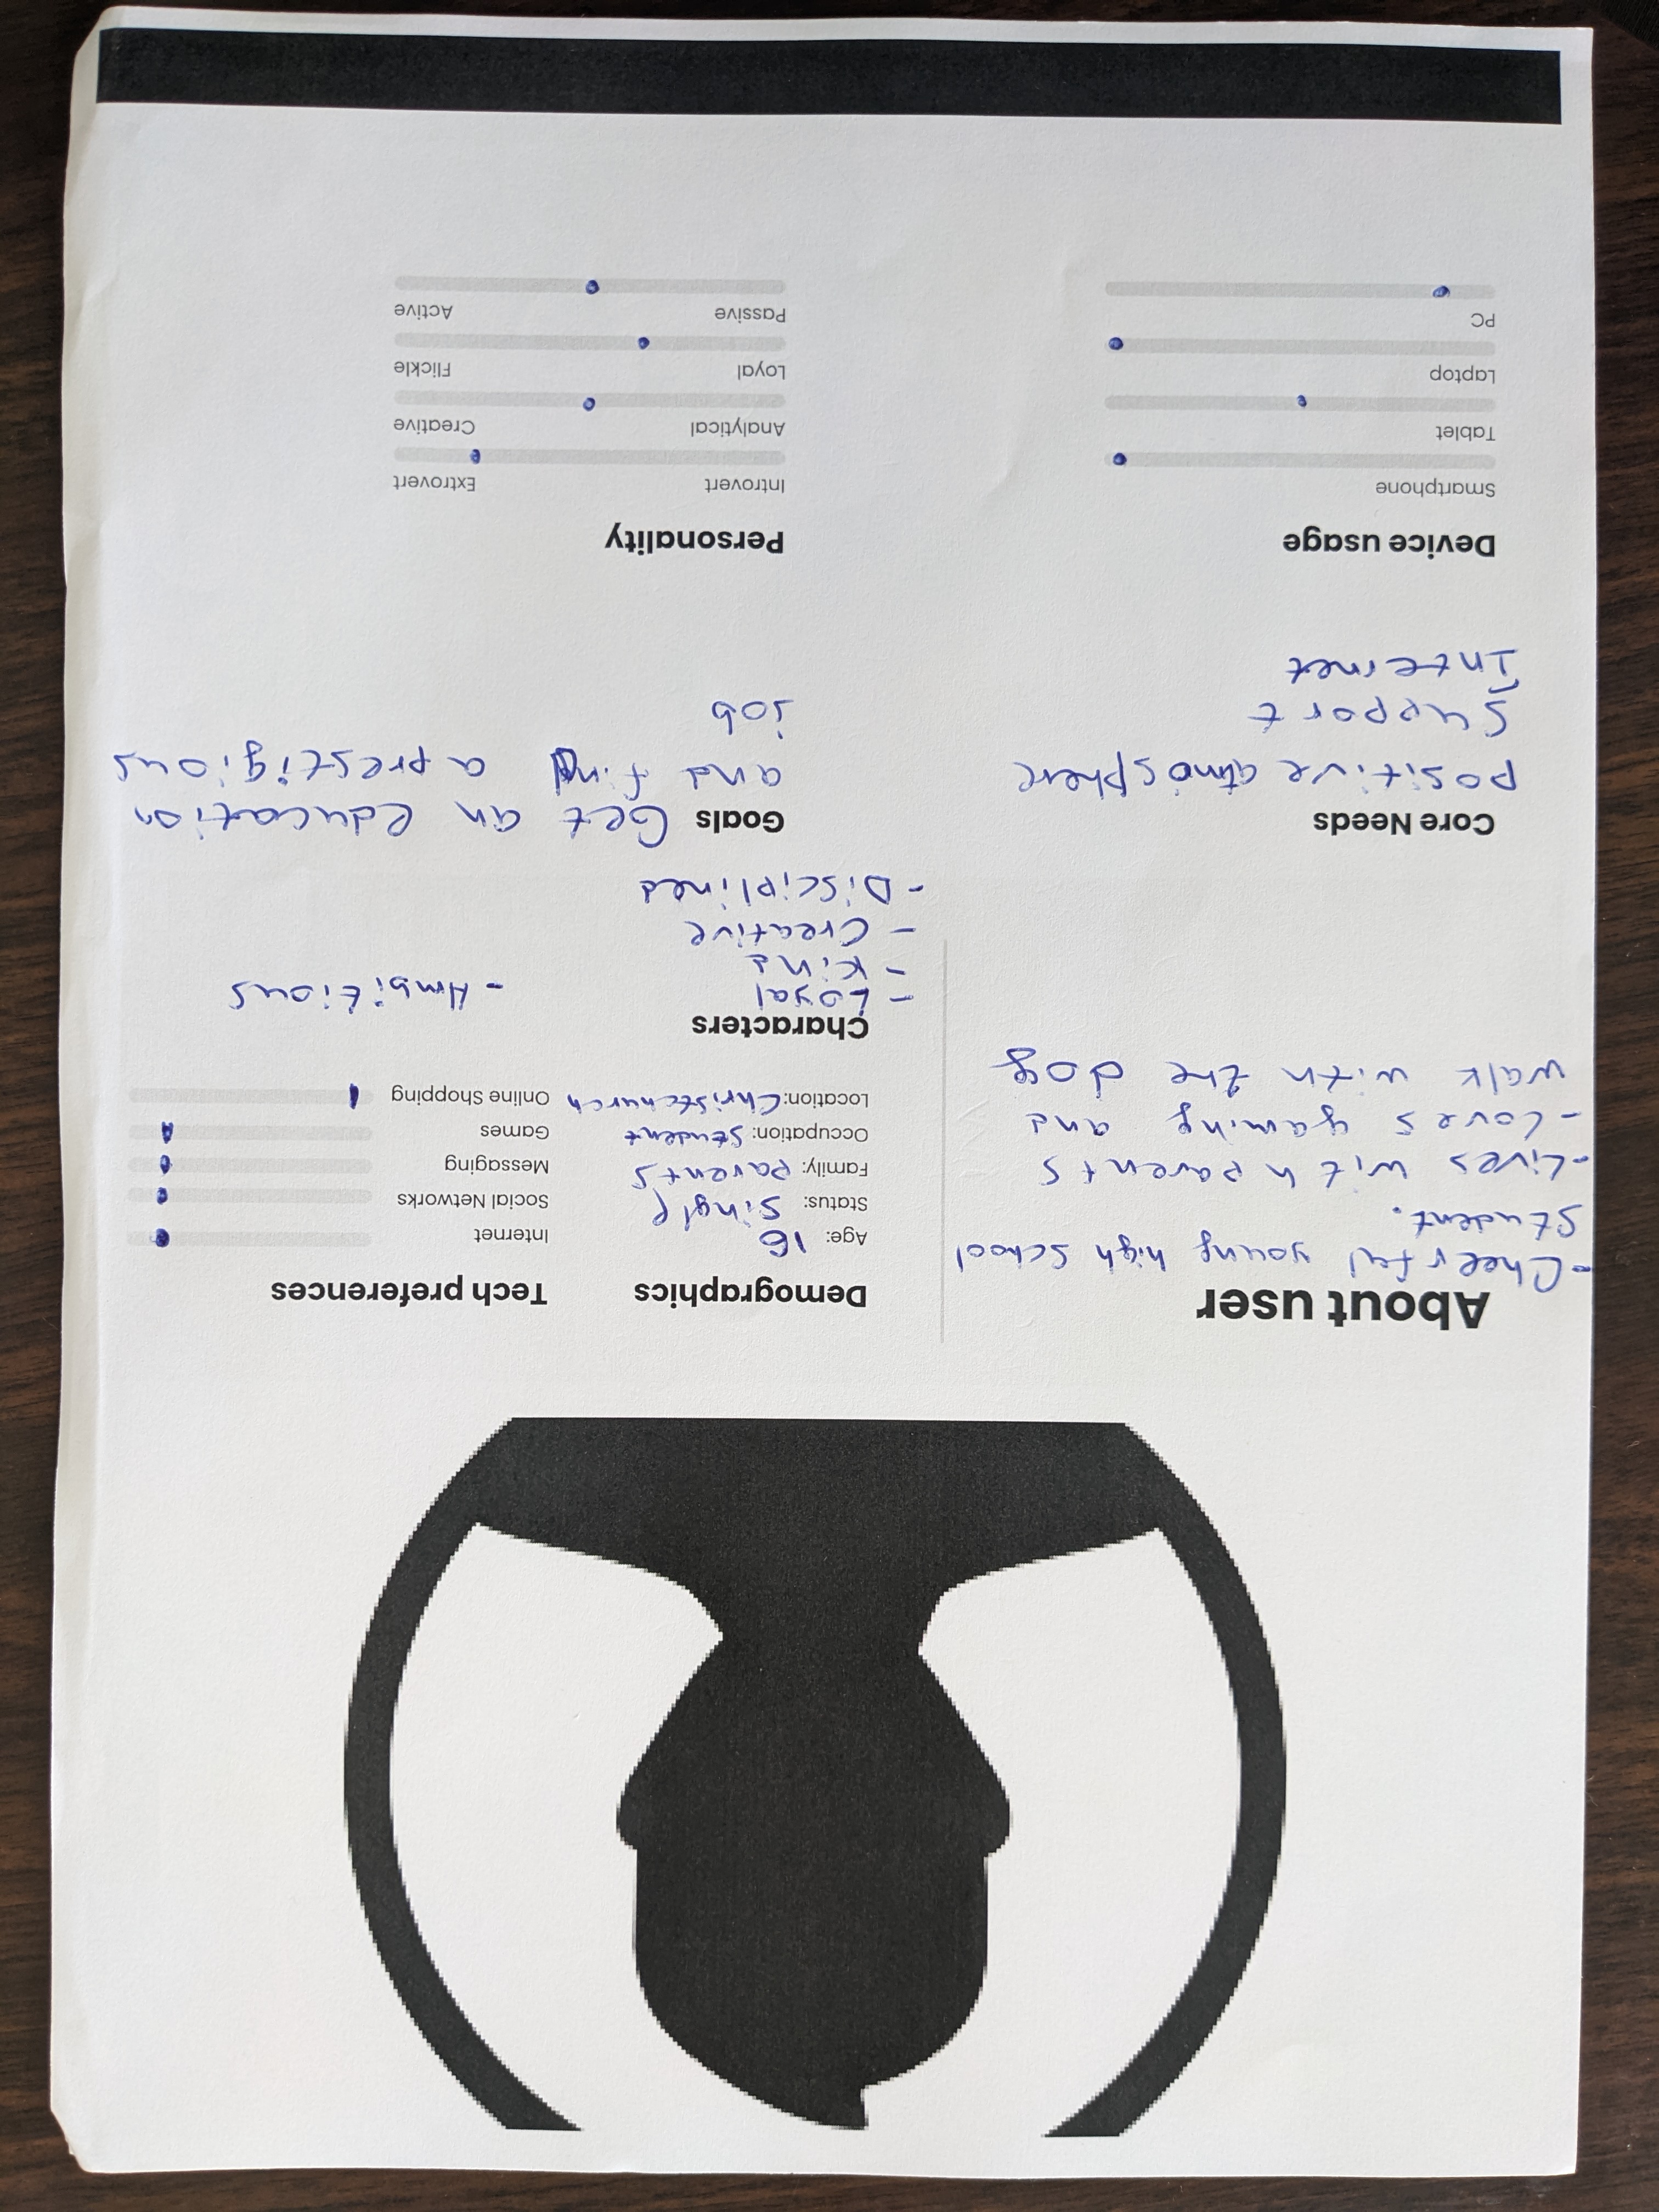 About user
- Cheerful young high school
student.
- Lives with parents
- Loves gaming and
walk with the dog
Demographics
Age: 16
Status: Single
Family: parents
Occupation: Student
Location: Christchurch
Tech preferences
Internet
Social Networks
Messaging
Games
Online Shopping
Characters
- Loyal
- Kind
- Creative
- Disciplined
- Ambitious
Core Needs
positive atmosphere
Support
Internet
Goals Get an education
and find a prestigious
job
Device usage
Smartphone
Tablet
Laptop
PC
Personality
Introvert Extrovert
Analytical Creative
Loyal Flickle
Passive Active